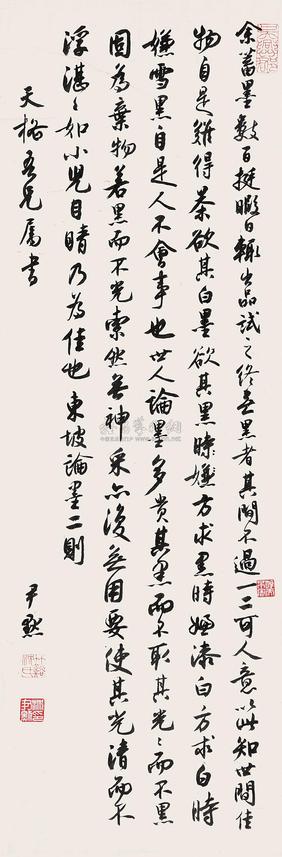 余蓄墨數百挺暇日輒出品試之終無黑者其間不過一二可人意以此知世間佳
物自是難得茶欲其白墨欲其黑方求黑時嫌漆白方求白時
嫌雪黑自是人不會事也世人論墨多貴其黑而不取其光光而不黑
固為棄物若黑而不光索然無神采亦復無用要使其光清而不
浮湛湛如小兒目睛乃為佳也東坡論墨二則
天格吾兄屬書
尹默